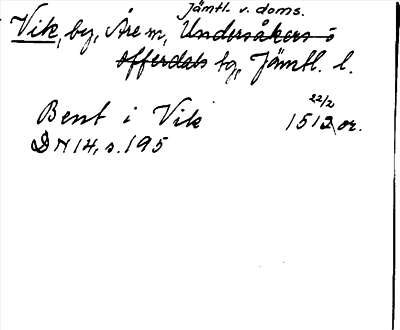 Jämtl. v. doms.
Vik, by, Åre m, Undersåkers o
Offerdals tg, Jämtl. l.
22/2
Bent i Vik 1512 or.
DN 14, s. 195